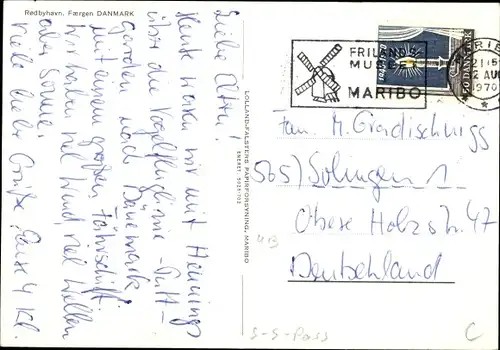 Rødbyhavn. Færgen DANMARK
Liebe Eltern!
Heute waren wir mit Hennings
über die Vogelfluglinie - Putt-
garden nach Dänemark
mit einem großen Fährschiff.
Wir haben viel Wind viel Wellen
aber Sonne.
Viele liebe Grüße
LOLLAND-FALSTERS PAPIRFORSYNING, MARIBO
FRILANDS
MUSEET
MARIBO
MARIBO
21 15
AUG
1970
DANMARK
Fam. M. Gradischnigg
565) Solingen 1
Obere Holzstr. 47
Deutschland
S-S-Pass
C